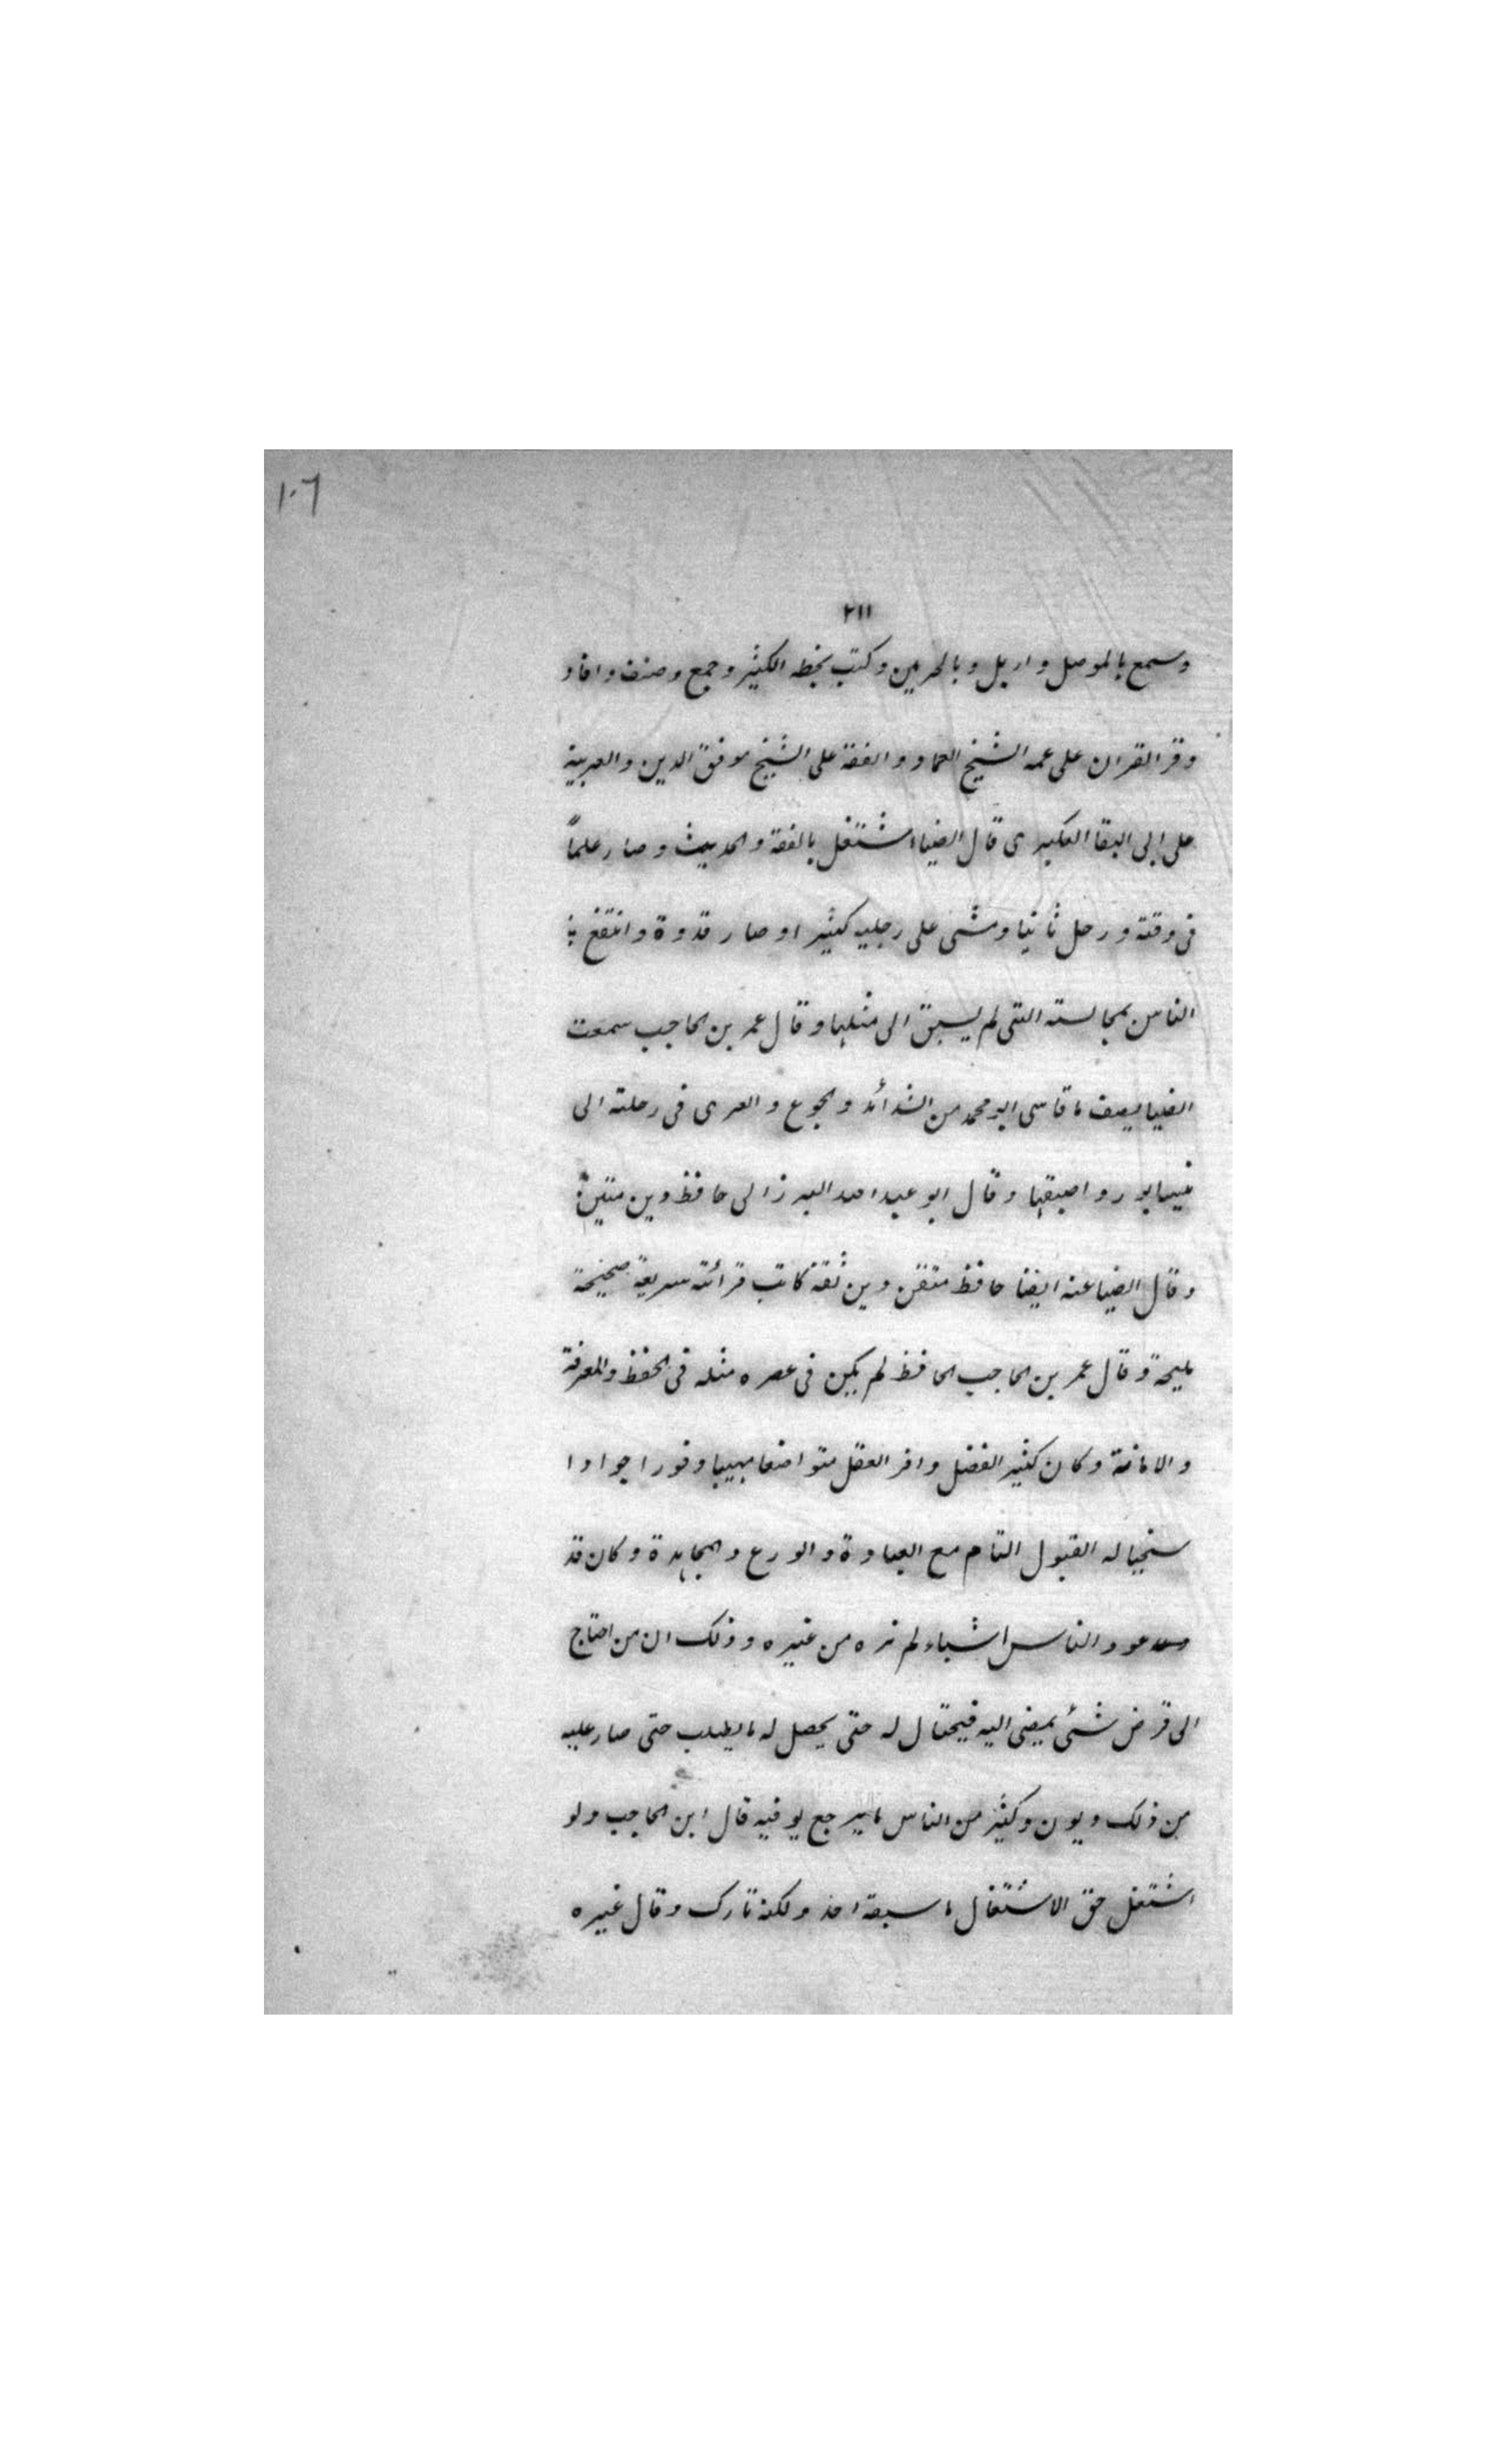 ١٠٦
٢١١
وسمع بالموصل واربل وبالحرمين وكتب بخطه الكثير وجمع وصنف وافاد
وقرا القران على عمه الشيخ العماد والفقة على الشيخ موفق الدين والعربية
على ابى البقا العكبرى قال الضياء اشتغل بالفقة والحديث وصار علماً
فى وقته ورحل ثانيا ومشى على رجليه كثيرا وصار قدوة وانتفع
الناس بمجالسته التى لم يسبق الى مثلها وقال عمر بن الحاجب سمعت
الضيا يصف ما قاسى ابو محمد من الشدائد والجوع والعرى فى رحلته الى
نيسابور واصبهان وقال ابو عبد الله البرزالى حافظ دين متين
وقال الضيا عنه ايضا حافظ متقن دين ثقة كانت قرائته سريعة صحيحة
مليحة وقال عمر بن الحاجب الحافظ لم يكن فى عصره مثله فى الحفظ والمعرفة
والامانة وكان كثير الفضل وافر العقل متواضعا مهيبا وقورا جوادا
سخيا له القبول التام مع العبادة والورع والمجاهدة وكان قد
عود الناس اشياء لم نره من غيره وذلك ان من احتاج
الى قرض شئ يمضى اليه فيحتال له حتى يحصل له ما يطلب حتى صار عليه
من ذلك ديون وكثير من الناس ما يرجع يوفيه قال ابن الحاجب ولو
اشتغل حق الاشتغال ما سبقه احد ولكنه تارك وقال غيره